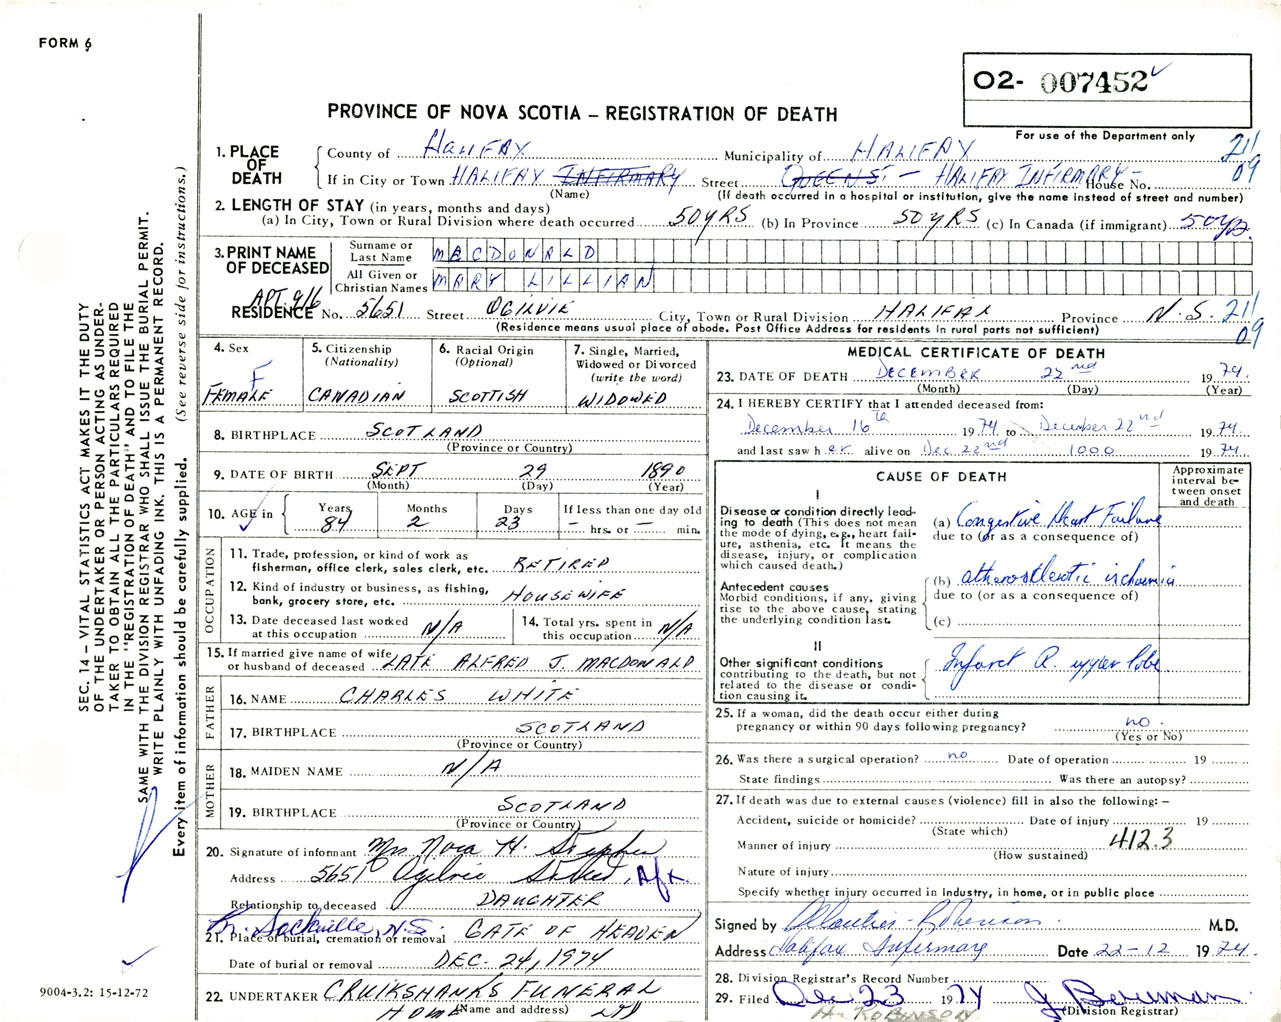 FORM 6
O2- 007452
PROVINCE OF NOVA SCOTIA – REGISTRATION OF DEATH
For use of the Department only
211
09
1. PLACE OF DEATH
County of HALIFAX Municipality of HALIFAX
If in City or Town HALIFAX INFIRMARY Street QUEENS – HALIFAX INFIRMARY – House No.
(Name) (If death occurred in a hospital or institution, give the name instead of street and number)
2. LENGTH OF STAY (in years, months and days)
(a) In City, Town or Rural Division where death occurred 50 YRS (b) In Province 50 YRS (c) In Canada (if immigrant) 50 yrs.
3. PRINT NAME OF DECEASED
Surname or Last Name MACDONALD
All Given or Christian Names MARY LILLIAN
APT. 916
RESIDENCE No. 5651 Street OGILVIE City, Town or Rural Division HALIFAX Province N.S. 211
09
(Residence means usual place of abode. Post Office Address for residents in rural parts not sufficient)
4. Sex F FEMALE
5. Citizenship (Nationality) CANADIAN
6. Racial Origin (Optional) SCOTTISH
7. Single, Married, Widowed or Divorced (write the word) WIDOWED
8. BIRTHPLACE SCOTLAND
(Province or Country)
9. DATE OF BIRTH SEPT 29 1890
(Month) (Day) (Year)
10. AGE in Years 84 Months 2 Days 23 If less than one day old – hrs. or – min.
OCCUPATION
11. Trade, profession, or kind of work as fisherman, office clerk, sales clerk, etc. RETIRED
12. Kind of industry or business, as fishing, bank, grocery store, etc. HOUSEWIFE
13. Date deceased last worked at this occupation N/A
14. Total yrs. spent in this occupation N/A
15. If married give name of wife or husband of deceased LATE ALFRED J. MACDONALD
FATHER
16. NAME CHARLES WHITE
17. BIRTHPLACE SCOTLAND
(Province or Country)
MOTHER
18. MAIDEN NAME N/A
19. BIRTHPLACE SCOTLAND
(Province or Country)
20. Signature of informant Mrs Nora H.
Address 5651 Ogilvie Street, Hfx.
Relationship to deceased DAUGHTER
Lr. Sackville, N.S.
21. Place of burial, cremation or removal GATE OF HEAVEN
Date of burial or removal DEC. 24, 1974
22. UNDERTAKER CRUIKSHANKS FUNERAL
HOME LTD
(Name and address)
MEDICAL CERTIFICATE OF DEATH
23. DATE OF DEATH DECEMBER 22nd 1974.
(Month) (Day) (Year)
24. I HEREBY CERTIFY that I attended deceased from:
December 16th 1974 to December 22nd 1974.
and last saw h er alive on Dec 22nd 1000 1974.
CAUSE OF DEATH
Approximate interval between onset and death
I
Disease or condition directly leading to death (This does not mean the mode of dying, e.g., heart failure, asthenia, etc. It means the disease, injury, or complication which caused death.)
(a) Congestive Heart Failure
due to (or as a consequence of)
Antecedent causes
Morbid conditions, if any, giving rise to the above cause, stating the underlying condition last.
(b) atherosclerotic ischaemia
due to (or as a consequence of)
(c)
II
Other significant conditions contributing to the death, but not related to the disease or condition causing it.
Infarct R. upper lobe
25. If a woman, did the death occur either during pregnancy or within 90 days following pregnancy? no.
(Yes or No)
26. Was there a surgical operation? no Date of operation 19
State findings Was there an autopsy?
27. If death was due to external causes (violence) fill in also the following: –
Accident, suicide or homicide? Date of injury 19
(State which)
412.3
Manner of injury
(How sustained)
Nature of injury
Specify whether injury occurred in industry, in home, or in public place
Signed by M.D.
Address Halifax Infirmary Date 22-12 1974.
28. Division Registrar's Record Number
29. Filed Dec 23 1974 J Bowman
(Division Registrar)
H. ROBINSON
SEC. 14 – VITAL STATISTICS ACT MAKES IT THE DUTY
OF THE UNDERTAKER OR PERSON ACTING AS UNDER-
TAKER TO OBTAIN ALL THE PARTICULARS REQUIRED
IN THE "REGISTRATION OF DEATH" AND TO FILE THE
SAME WITH THE DIVISION REGISTRAR WHO SHALL ISSUE THE BURIAL PERMIT.
WRITE PLAINLY WITH UNFADING INK. THIS IS A PERMANENT RECORD.
Every item of information should be carefully supplied. (See reverse side for instructions.)
9004-3.2: 15-12-72